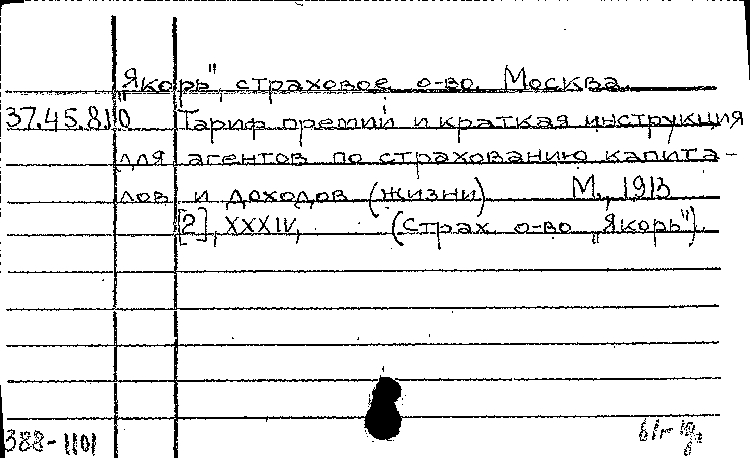 „Якорь", страховое о-во. Москва.
37.45.810 Тариф премий и краткая инструкция
для агентов по страхованию капита-
лов и доходов (жизни) М., 1913
[2], XXXIV, (Страх. о-во „Якорь").
388-1101